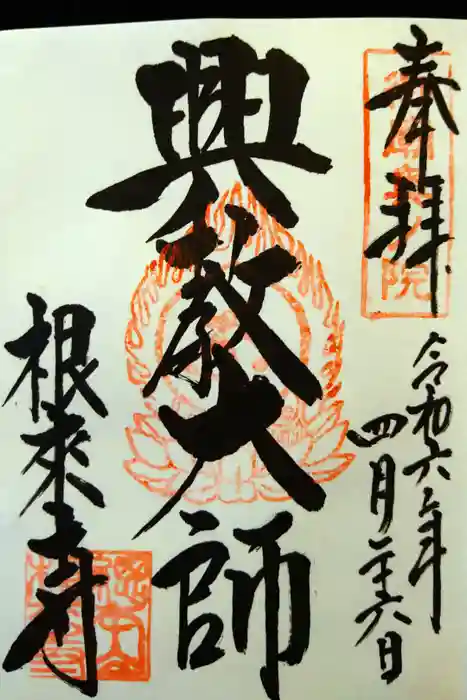 奉拝
令和六年
四月二十六日
興教大師
根來寺